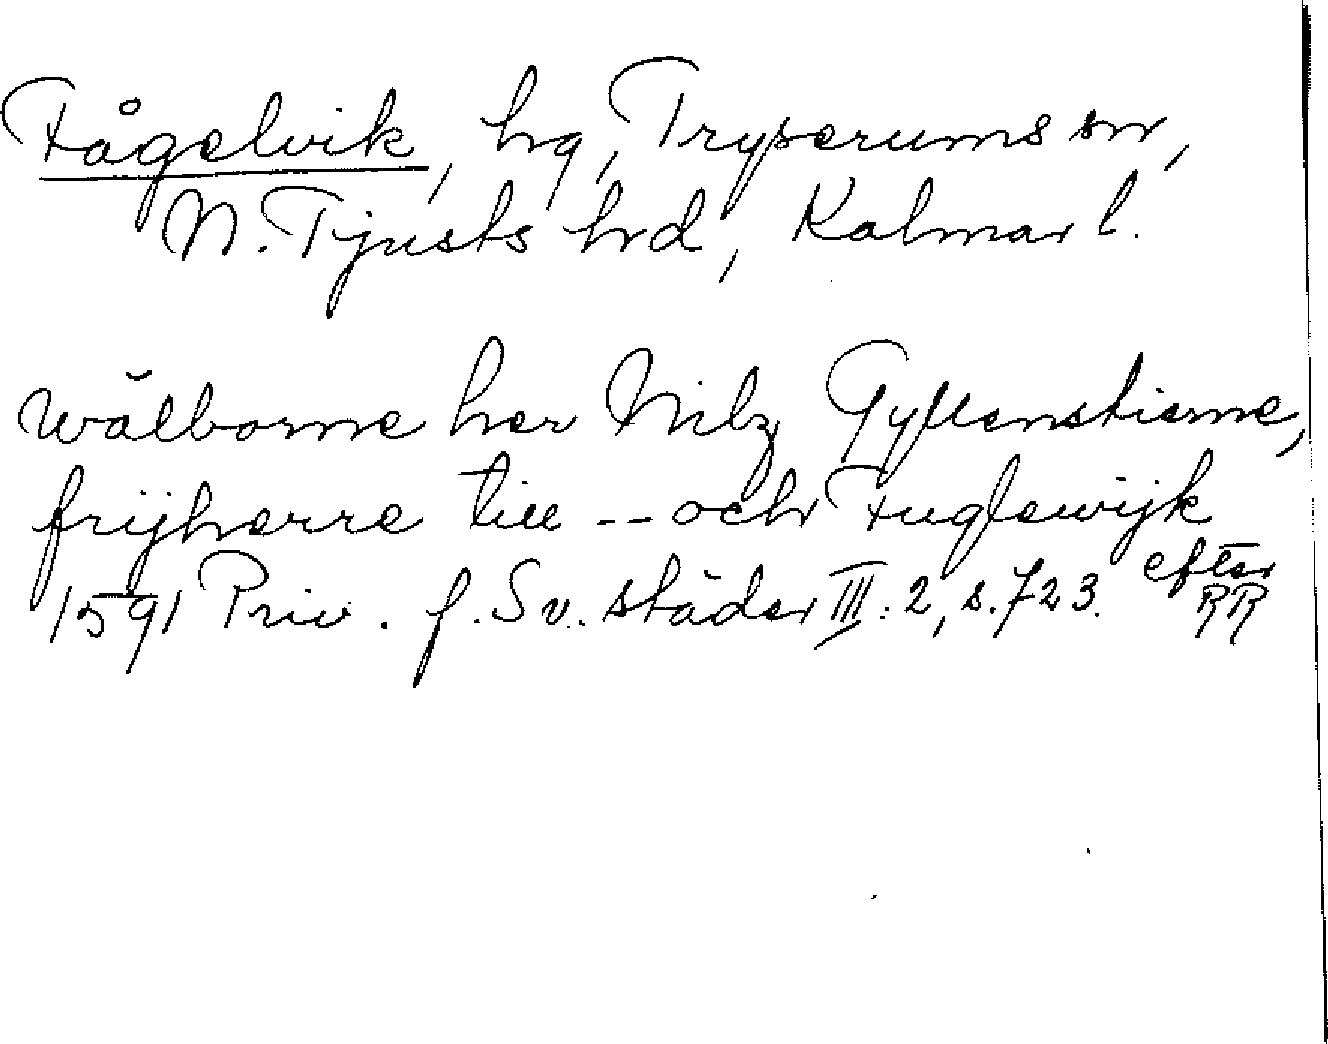 Fågelvik, hg, Tryserums sn,
N. Tjusts hd, Kalmar l.
wälborne her Nilz Gyllenstierne,
frijherre till -- och Fuglewijk
1591 Priv. f. Sv. städer III: 2, s. 723. efter RR